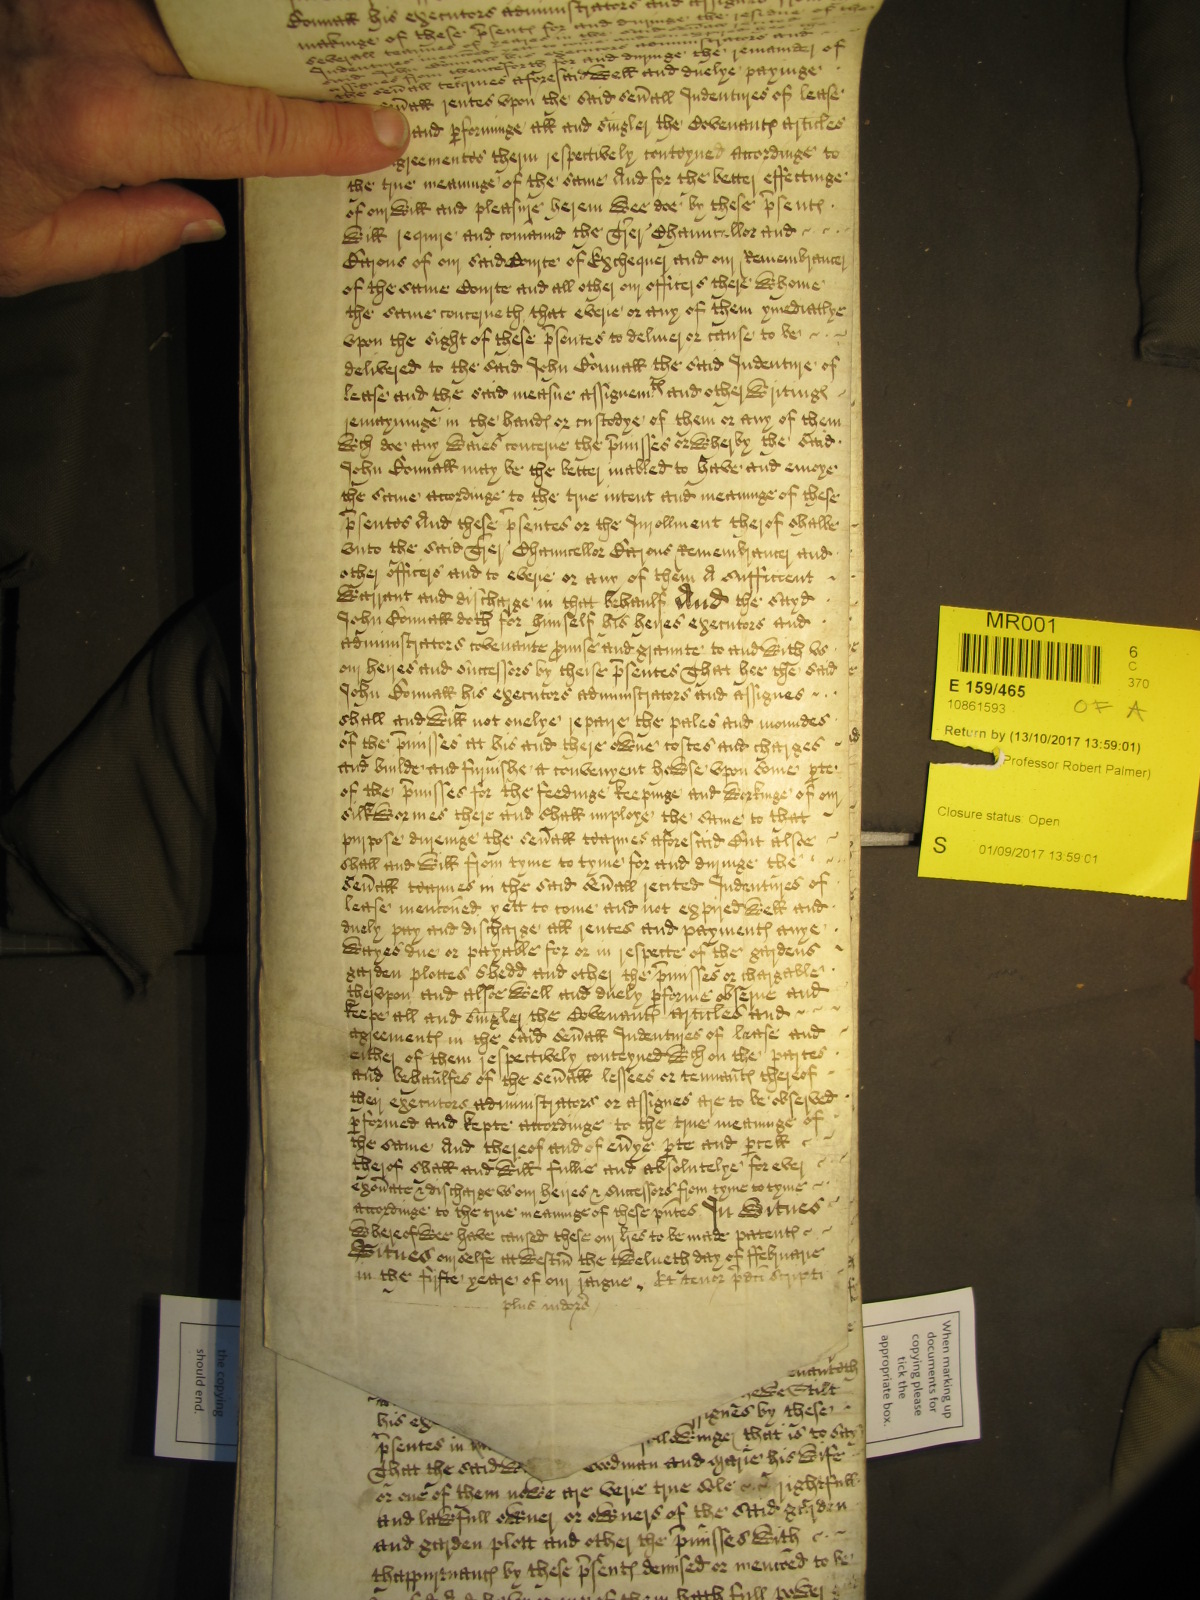 Bonnall his executors administrators and assignes from the
makinge of these p̄sentℯ for and duringe the residue of the
severall tearmes of yeares in the said severall recited
Indentures menc̄oned yett to come
assignes from thenceforth for and duringe the remainder of
the sev̄all tearmes aforesaid Well and duelye payinge
sev̄all rentes vpon the said sev̄all Indentures of lease
and p̱forminge all and singler the Covenantℯ articles
agreementes therin respectively conteyned accordinge to
the true meaninge of the same And for the better effectinge
of our Will and pleasure herein Wee doe by these p̄sentℯ
Will require and com̄aund the Tr̄er Chauncellor and
Barons of our said Courte of Exchequer and our Remembrancer
of the same Courte and all other our officers there Whome
the same concerneth, that everie or any of them ymediatlye
vpon the sight of these p̄sentes to deliuer or cause to be
delivered to the said John Bonnall the said Indenture of
lease and the said measne assignemᵗℯ and other Writingℯ
remayninge in the handℯ or custodye of them or any of them
Wch doe any Waies concerne the p̄misses or Wherby the said
John Bonnall may be the better inabled to have and enioye
the same accordinge to the true intent and meaninge of these
p̄sentes And these p̄sentes or the Inrollment therof shalbe
vnto the said Tr̄er Chauncellor Barons Remembrancer and
other officers and to everie or any of them A sufficient
Warrant and discharge in that behaulf And the sayd
John Bonnall doth for himself his heires executors and
administrators covenante p̱mise and graunte to and With vs
our heires and successors by theise p̄sentes That hee the said
John Bonnall his executors administrators and assignes
shall and Will not onelye repaire the pales and moundes
of the p̄misses at his and there owne costes and charges
and builde and finnishe a convenyent howse vpon some p̱te
of the p̄misses for the feedinge keepinge and Workinge of our
silkwormes there and shall imploye the same to that
purpose dureinge the sev̄all tearmes aforesaid But alsoe
shall and Will from tyme to tyme for and duringe the
sev̄all tearmes in the said sev̄all recited Indentures of
lease mentōned yett to come and not expired Well and
duely pay and discharge all rentes and paymentℯ anye
Wayes due or payable for or in respecte of the gardens
garden plottes shedd and other the p̄misses or chargable
thervpon and alsoe Well and duely p̱forme observe and
keepe all and singler the Covenantℯ articles and
agreementℯ in the said sev̄all Indentures of lease and
either of them respectively conteyned Wch on the partes
and behaulfes of the sev̄all lessees or tennantℯ thereof
their executors administrators or assignes are to be observed
p̱formed and kepte accordinge to the true meaninge of
the same And thereof and of ev̄ye p̱te and p̱cell
therof shall and Will fullie and absolutelye for ever
exon̄ate & discharge vs our heires & successors from tyme to tyme
accordinge to the true meaninge of these pn̄tes In Witnes
Whereof Wee have caused these our lr̄es to be made patentℯ
Witnes our selfe at Westm̄ the twelueth day of ffebruarie
in the fifte yeare of our raigne. Et tenor p̄dc̄i scripti
plus indors̄
covenanteth
his
assignes by these
p̄sentes in
followinge that is to say
That the said W
oodman and Marie his Wife
or one of them nowe are verie true sole rightfull
and lawfull owner or owners of the said garden
and garden plott and other the p̄misses With
thappurtenantℯ by these p̄sentℯ demised or menc̄oed to be
of them hath full power
MR001
6
C
370
E 159/465
10861593
OF A
Return by (13/10/2017 13:59:01)
(Professor Robert Palmer)
Closure status: Open
S
01/09/2017 13:59:01
the copying
should end.
When marking up
documents for
copying please
tick the
appropriate box.